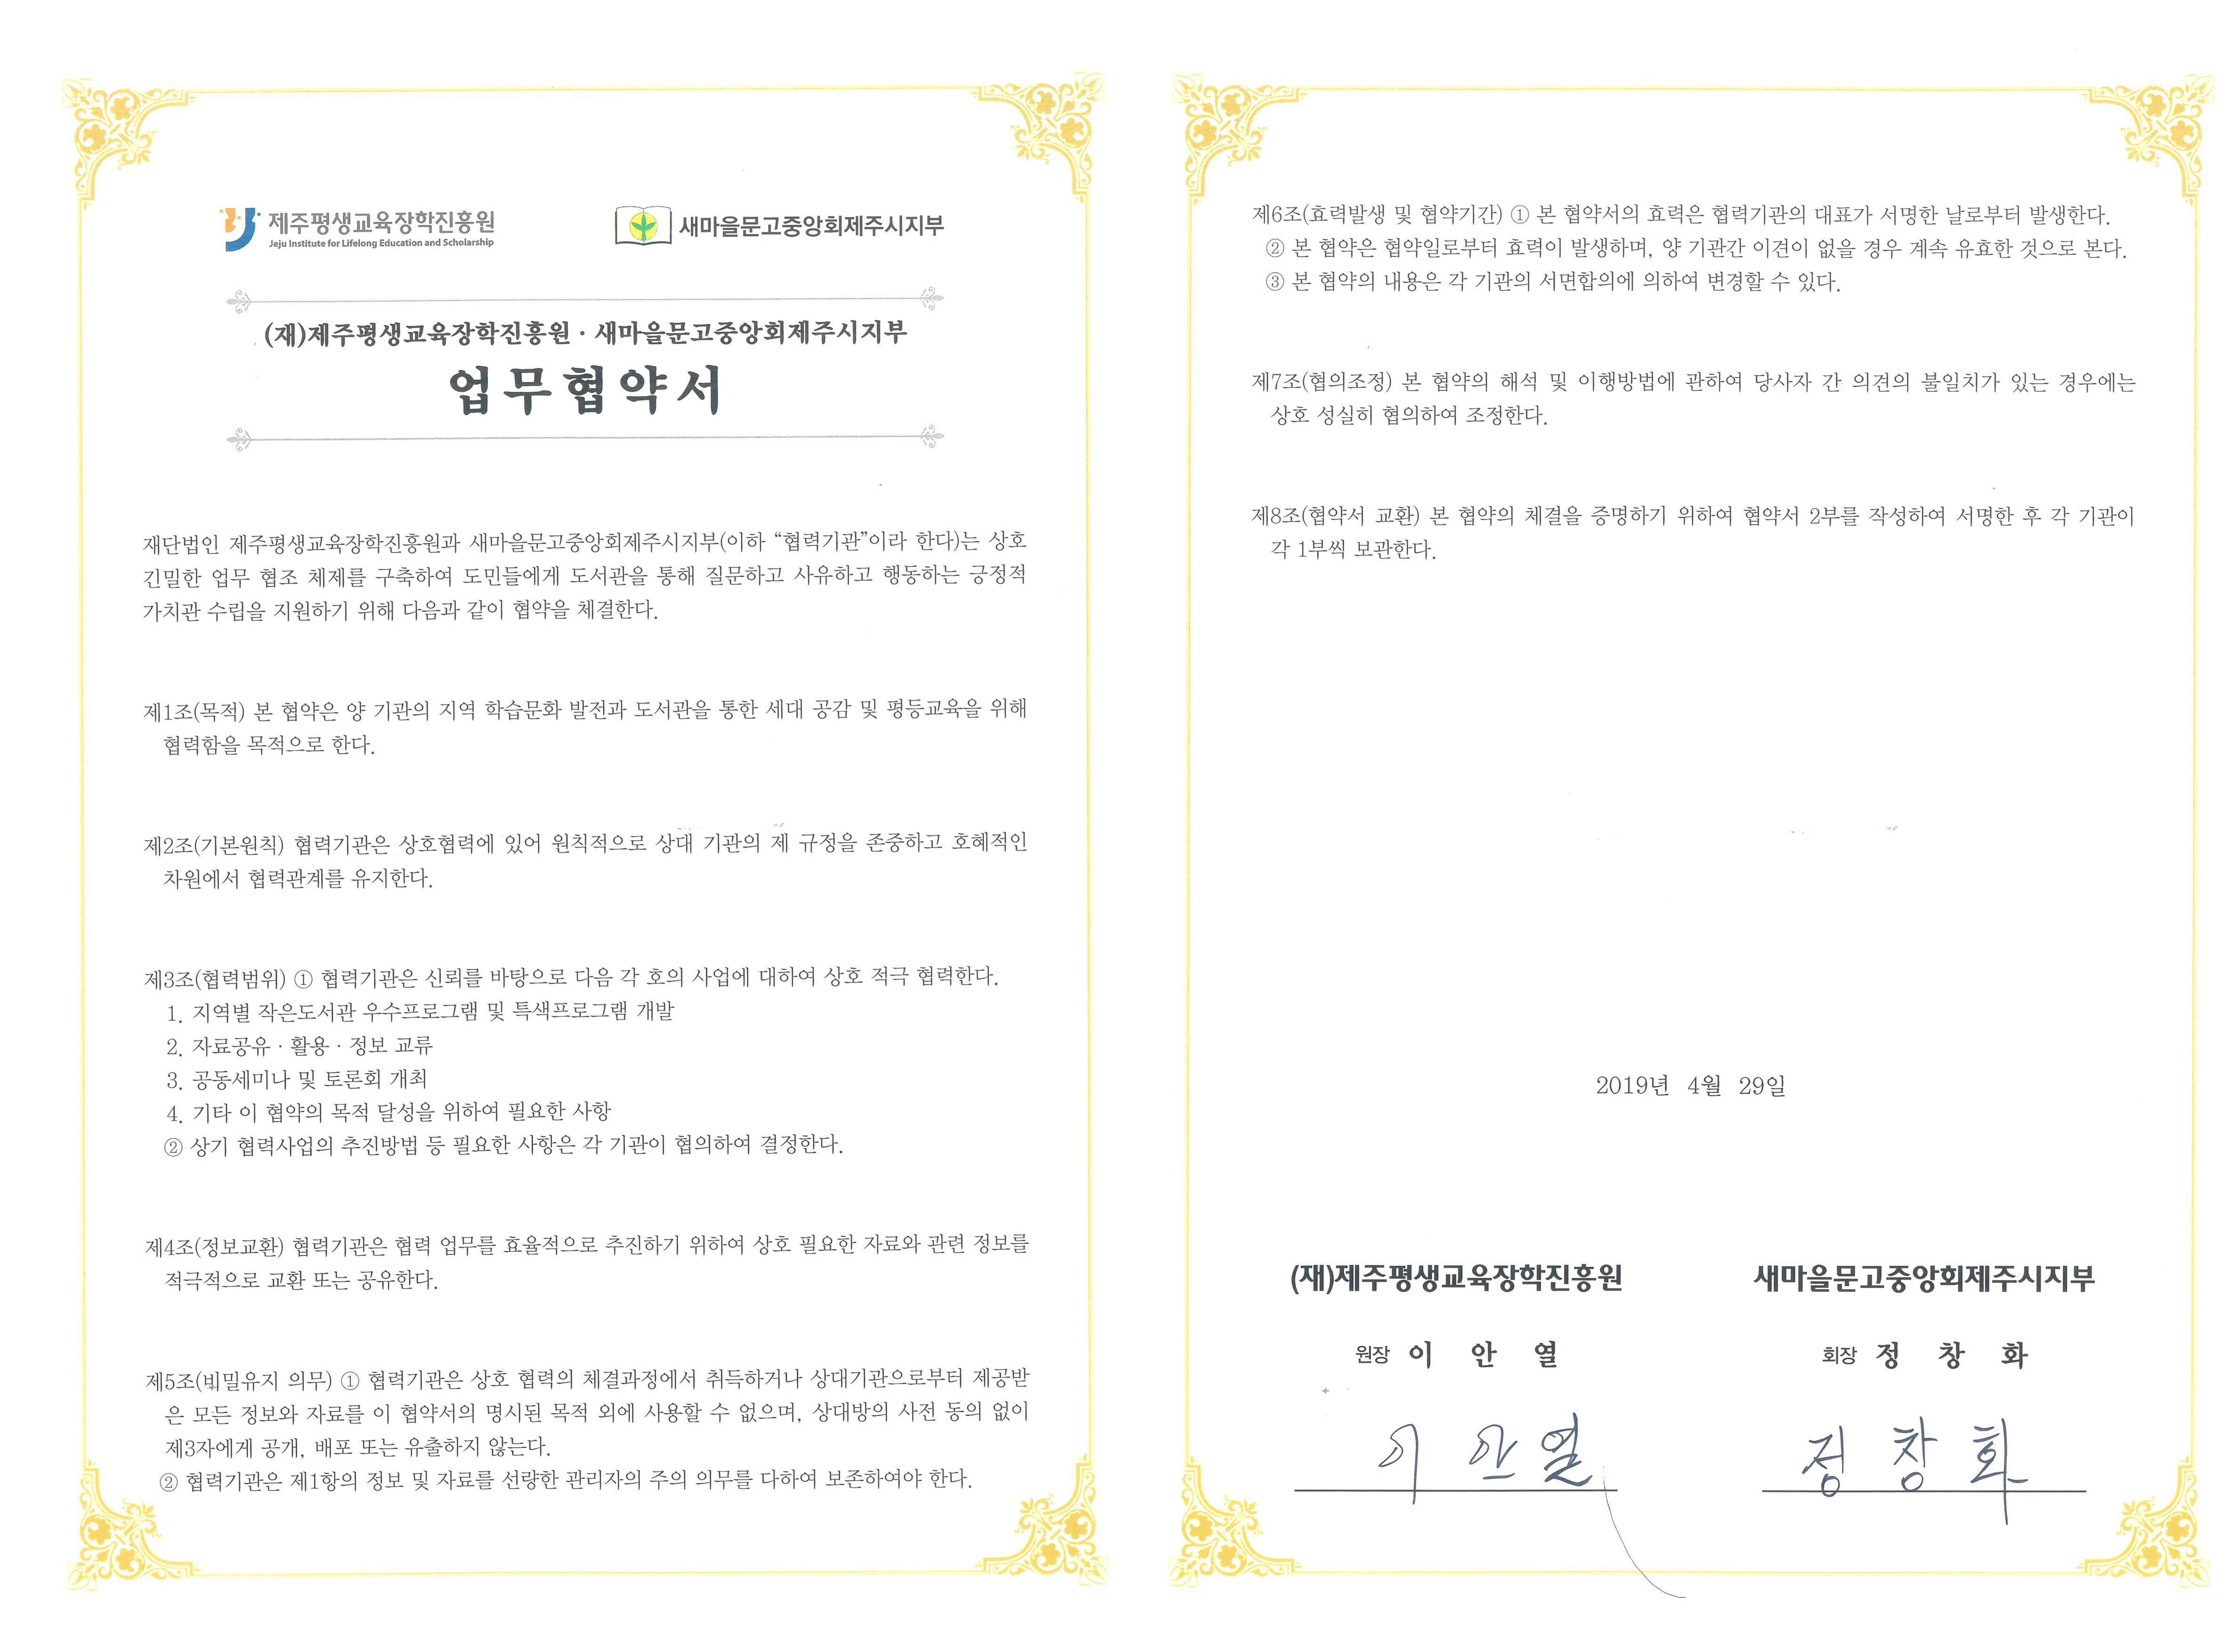 제주평생교육장학진흥원
Jeju Institute for Lifelong Education and Scholarship
새마을문고중앙회제주시지부
(재)제주평생교육장학진흥원 · 새마을문고중앙회제주시지부
업무협약서
재단법인 제주평생교육장학진흥원과 새마을문고중앙회제주시지부(이하 “협력기관”이라 한다)는 상호
긴밀한 업무 협조 체제를 구축하여 도민들에게 도서관을 통해 질문하고 사유하고 행동하는 긍정적
가치관 수립을 지원하기 위해 다음과 같이 협약을 체결한다.
제1조(목적) 본 협약은 양 기관의 지역 학습문화 발전과 도서관을 통한 세대 공감 및 평등교육을 위해
협력함을 목적으로 한다.
제2조(기본원칙) 협력기관은 상호협력에 있어 원칙적으로 상대 기관의 제 규정을 존중하고 호혜적인
차원에서 협력관계를 유지한다.
제3조(협력범위) ① 협력기관은 신뢰를 바탕으로 다음 각 호의 사업에 대하여 상호 적극 협력한다.
1. 지역별 작은도서관 우수프로그램 및 특색프로그램 개발
2. 자료공유 · 활용 · 정보 교류
3. 공동세미나 및 토론회 개최
4. 기타 이 협약의 목적 달성을 위하여 필요한 사항
② 상기 협력사업의 추진방법 등 필요한 사항은 각 기관이 협의하여 결정한다.
제4조(정보교환) 협력기관은 협력 업무를 효율적으로 추진하기 위하여 상호 필요한 자료와 관련 정보를
적극적으로 교환 또는 공유한다.
제5조(비밀유지 의무) ① 협력기관은 상호 협력의 체결과정에서 취득하거나 상대기관으로부터 제공받
은 모든 정보와 자료를 이 협약서의 명시된 목적 외에 사용할 수 없으며, 상대방의 사전 동의 없이
제3자에게 공개, 배포 또는 유출하지 않는다.
② 협력기관은 제1항의 정보 및 자료를 선량한 관리자의 주의 의무를 다하여 보존하여야 한다.
제6조(효력발생 및 협약기간) ① 본 협약서의 효력은 협력기관의 대표가 서명한 날로부터 발생한다.
② 본 협약은 협약일로부터 효력이 발생하며, 양 기관간 이견이 없을 경우 계속 유효한 것으로 본다.
③ 본 협약의 내용은 각 기관의 서면합의에 의하여 변경할 수 있다.
제7조(협의조정) 본 협약의 해석 및 이행방법에 관하여 당사자 간 의견의 불일치가 있는 경우에는
상호 성실히 협의하여 조정한다.
제8조(협약서 교환) 본 협약의 체결을 증명하기 위하여 협약서 2부를 작성하여 서명한 후 각 기관이
각 1부씩 보관한다.
2019년 4월 29일
(재)제주평생교육장학진흥원
원장 이 안 열
이 안 열
새마을문고중앙회제주시지부
회장 정 창 화
정 창 화